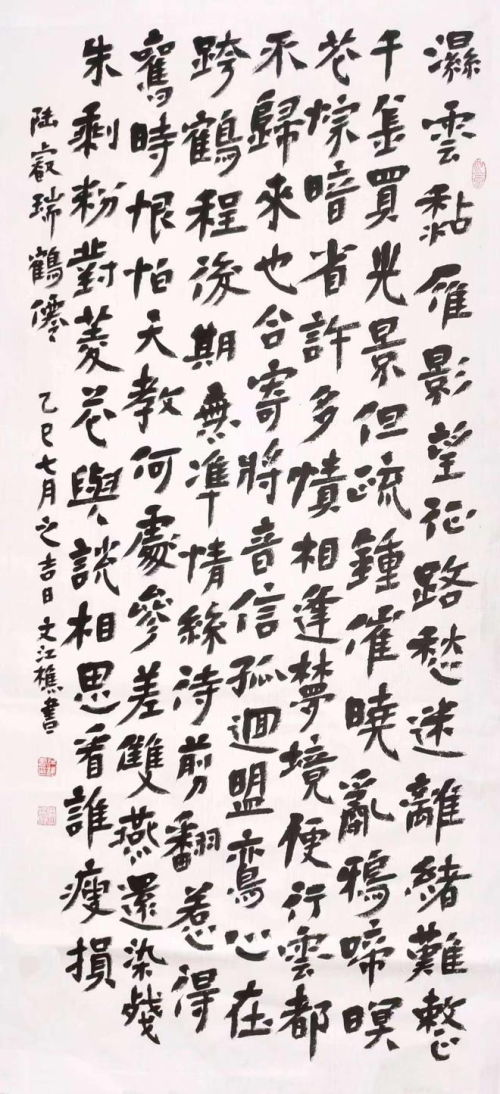 濕雲黏雁影望征路愁迷離緒難整
千金買光景但疏鍾催曉亂鴉啼暝
花悰暗省許多情相逢夢境便行雲都
不歸來也合寄將音信孤迥盟鸞心在
跨鶴程後期無準情絲待剪翻惹得
舊時恨怕天教何處參差雙燕還染殘
朱剩粉對菱花與說相思看誰瘦損
陸叡瑞鶴僊 乙巳七月之吉日文江樵書